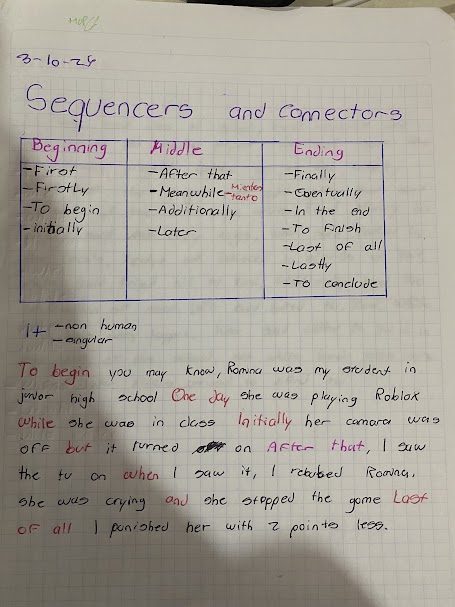 3-10-25
Sequencers and connectors
Beginning Middle Ending
-First -After that -Finally
-Firstly -Meanwhile-Mientras tanto -Eventually
-To begin -Additionally -In the end
-initially -Later -To Finish
-Last of all
-Lastly
-To conclude
It -non human
-singular
To begin you may know, Romina was my student in
junior high school One day she was playing Roblox
while she was in class Initially her camara was
off but it turned on After that, I saw
the tv on when I saw it, I rebuked Romina.
she was crying and she stopped the game Last
of all I punished her with 2 points less.